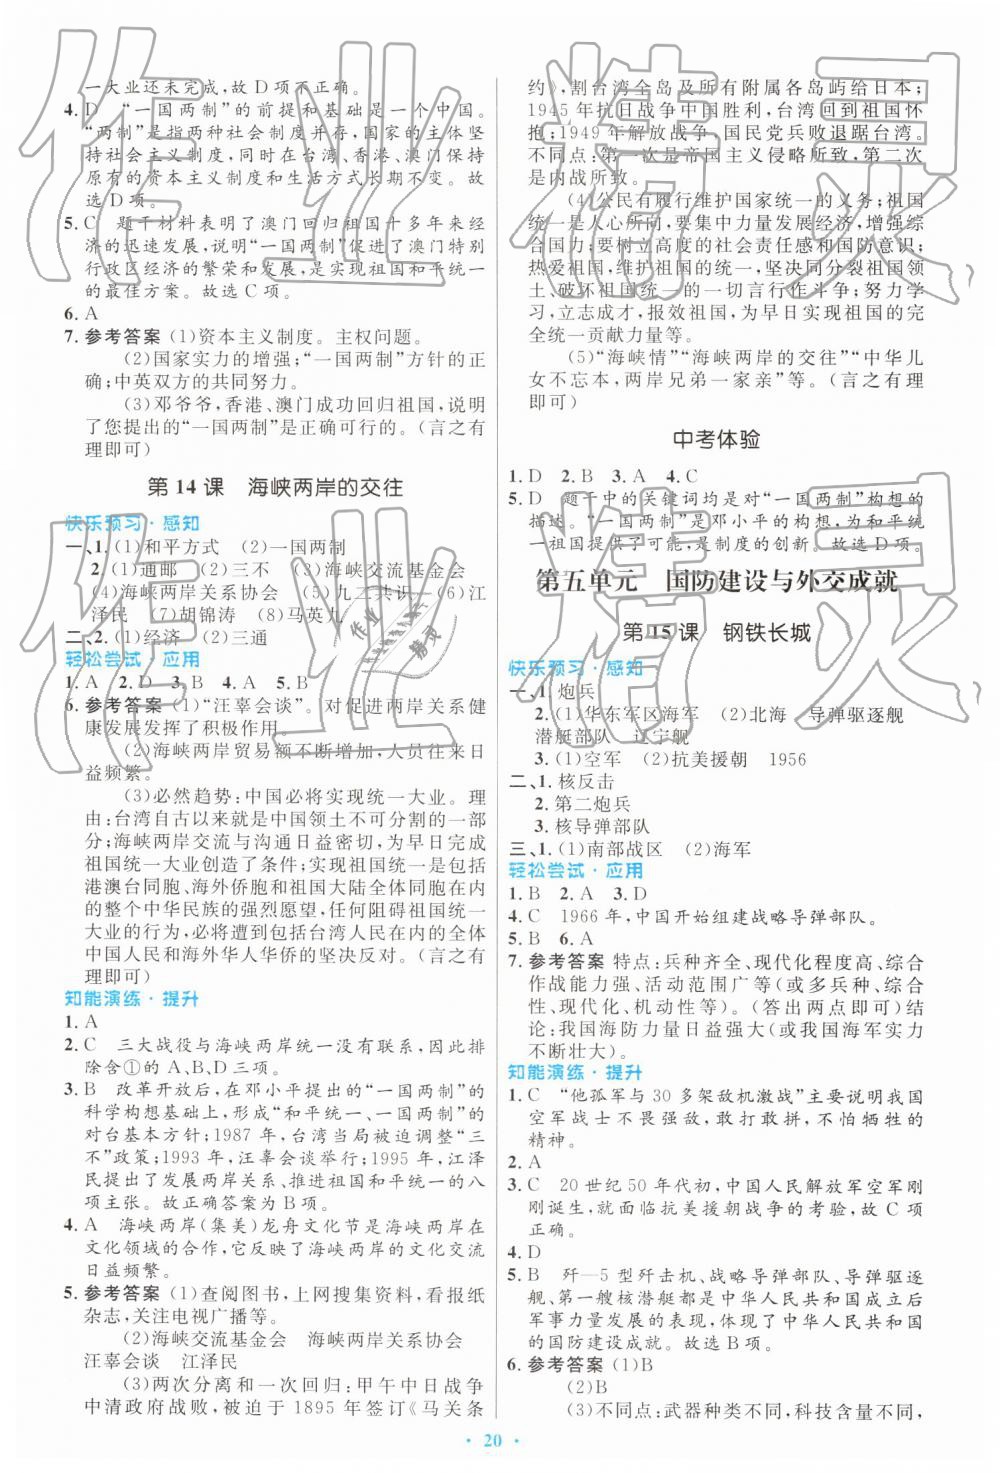 一大业还未完成,故D项不正确。
4. D “一国两制”的前提和基础是一个中国。
“两制”是指两种社会制度并存,国家的主体坚
持社会主义制度,同时在台湾、香港、澳门保持
原有的资本主义制度和生活方式长期不变。故
选D项。
5. C 题干材料表明了澳门回归祖国十多年来经
济的迅速发展,说明“一国两制”促进了澳门特别
行政区经济的繁荣和发展,是实现祖国和平统一
的最佳方案。故选C项。
6. A
7. 参考答案 (1)资本主义制度。主权问题。
(2)国家实力的增强;“一国两制”方针的正
确;中英双方的共同努力。
(3)邓爷爷,香港、澳门成功回归祖国,说明
了您提出的“一国两制”是正确可行的。(言之有
理即可)
第14课 海峡两岸的交往
快乐预习·感知
一、1. (1)和平方式 (2)一国两制
2. (1)通邮 (2)三不 (3)海峡交流基金会
(4)海峡两岸关系协会 (5)九二共识 (6)江
泽民 (7)胡锦涛 (8)马英九
二、2. (1)经济 (2)三通
轻松尝试·应用
1. A 2. D 3. B 4. A 5. B
6. 参考答案 (1)“汪辜会谈”。对促进两岸关系健
康发展发挥了积极作用。
(2)海峡两岸贸易额不断增加,人员往来日
益频繁。
(3)必然趋势:中国必将实现统一大业。理
由:台湾自古以来就是中国领土不可分割的一部
分;海峡两岸交流与沟通日益密切,为早日完成
祖国统一大业创造了条件;实现祖国统一是包括
港澳台同胞、海外侨胞和祖国大陆全体同胞在内
的整个中华民族的强烈愿望,任何阻碍祖国统一
大业的行为,必将遭到包括台湾人民在内的全体
中国人民和海外华人华侨的坚决反对。(言之有
理即可)
知能演练·提升
1. A
2. C 三大战役与海峡两岸统一没有联系,因此排
除含①的A、B、D三项。
3. B 改革开放后,在邓小平提出的“一国两制”的
科学构想基础上,形成“和平统一、一国两制”的
对台基本方针;1987年,台湾当局被迫调整“三
不”政策;1993年,汪辜会谈举行;1995年,江泽
民提出了发展两岸关系、推进祖国和平统一的八
项主张。故正确答案为B项。
4. A 海峡两岸(集美)龙舟文化节是海峡两岸在
文化领域的合作,它反映了海峡两岸的文化交流
日益频繁。
5. 参考答案 (1)查阅图书,上网搜集资料,看报纸
杂志,关注电视广播等。
(2)海峡交流基金会 海峡两岸关系协会
汪辜会谈 江泽民
(3)两次分离和一次回归:甲午中日战争
中清政府战败,被迫于1895年签订《马关条
约》,割台湾全岛及所有附属各岛屿给日本;
1945年抗日战争中国胜利,台湾回到祖国怀
抱;1949年解放战争,国民党兵败退踞台湾。
不同点:第一次是帝国主义侵略所致,第二次
是内战所致。
(4)公民有履行维护国家统一的义务;祖国
统一是人心所向,要集中力量发展经济,增强综
合国力;要树立高度的社会责任感和国防意识;
热爱祖国,维护祖国的统一,坚决同分裂祖国领
土、破坏祖国统一的一切言行作斗争;努力学
习,立志成才,报效祖国,为早日实现祖国的完
全统一贡献力量等。
(5)“海峡情”“海峡两岸的交往”“中华儿
女不忘本,两岸兄弟一家亲”等。(言之有理
即可)
中考体验
1. D 2. B 3. A 4. C
5. D 题干中的关键词均是对“一国两制”构想的
描述。“一国两制”是邓小平的构想,为和平统
一祖国提供了可能,是制度的创新。故选D项。
第五单元 国防建设与外交成就
第15课 钢铁长城
快乐预习·感知
一、1. 炮兵
2. (1)华东军区海军 (2)北海 导弹驱逐舰
潜艇部队 辽宁舰
3. (1)空军 (2)抗美援朝 1956
二、1. 核反击
2. 第二炮兵
3. 核导弹部队
三、1. (1)南部战区 (2)海军
轻松尝试·应用
1. B 2. A 3. D
4. C 1966年,中国开始组建战略导弹部队。
5. B 6. A
7. 参考答案 特点:兵种齐全、现代化程度高、综合
作战能力强、活动范围广等(或多兵种、综合
性、现代化、机动性等)。(答出两点即可)结
论:我国海防力量日益强大(或我国海军实力
不断壮大)。
知能演练·提升
1. C “他孤军与30多架敌机激战”主要说明我国
空军战士不畏强敌,敢打敢拼,不怕牺牲的
精神。
2. A
3. C 20世纪50年代初,中国人民解放军空军刚
刚诞生,就面临抗美援朝战争的考验,故C项
正确。
4. D
5. B 歼—5型歼击机、战略导弹部队、导弹驱逐
舰、第一艘核潜艇都是中华人民共和国成立后
军事力量发展的表现,体现了中华人民共和国
的国防建设成就。故选B项。
6. 参考答案 (1)B
(2)B
(3)不同点:武器种类不同,科技含量不同,
· 20 ·
作业精灵
作业精灵
作业精灵